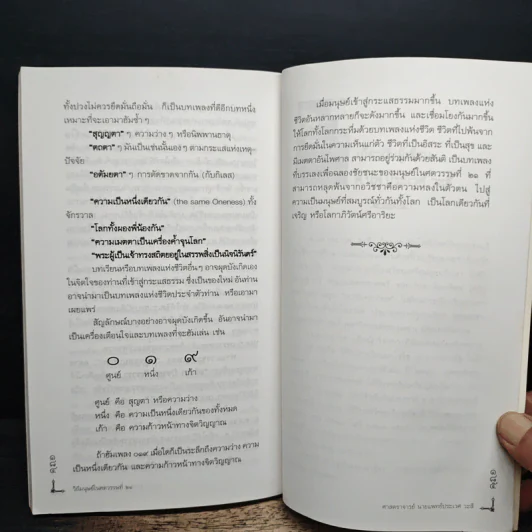 ทั้งปวงไม่ควรยึดมั่นถือมั่น ก็เป็นบทเพลงที่ดีอีกบทหนึ่ง
เหมาะที่จะเอามาฮัมซ้ำๆ
"สุญญตา" ๆ ความว่าง ๆ หรือนิพพานธาตุ
"ตถตา" ๆ มันเป็นเช่นนั้นเอง ๆ ตามกระแสแห่งเหตุ-
ปัจจัย
"อตัมยตา" ๆ การตัดขาดจากกัน (กับกิเลส)
"ความเป็นหนึ่งเดียวกัน" (the same Oneness) ทั้ง
จักรวาล
"โลกทั้งผองพี่น้องกัน"
"ความเมตตาเป็นเครื่องค้ำจุนโลก"
"พระผู้เป็นเจ้าทรงสถิตอยู่ในสรรพสิ่งเป็นนิจนิรันดร์"
บทเรียนหรือบทเพลงแห่งชีวิตอื่นๆ อาจผุดบังเกิดเอง
ในจิตใจของท่านที่เข้าสู่กระแสธรรม ซึ่งเป็นของใหม่ อันท่าน
อาจนำมาเป็นบทเพลงแห่งชีวิตประจำตัวท่าน หรือเอามา
เผยแพร่
สัญลักษณ์บางอย่างอาจผุดบังเกิดขึ้น อันอาจนำมา
เป็นเครื่องเตือนใจและบทเพลงที่จะฮัมเล่น เช่น
๐ ๑ ๙
ศูนย์ หนึ่ง เก้า
ศูนย์ คือ สุญตา หรือความว่าง
หนึ่ง คือ ความเป็นหนึ่งเดียวกันของทั้งหมด
เก้า คือ ความก้าวหน้าทางจิตวิญญาณ
ถ้าฮัมเพลง ๐๑๙ เมื่อใดก็เป็นระลึกถึงความว่าง ความ
เป็นหนึ่งเดียวกัน และความก้าวหน้าทางจิตวิญญาณ
วิถีมนุษย์ในศตวรรษที่ ๒๑
เมื่อมนุษย์เข้าสู่กระแสธรรมมากขึ้น บทเพลงแห่ง
ชีวิตอันหลากหลายก็จะดังมากขึ้น และเชื่อมโยงกันมากขึ้น
ให้โลกทั้งโลกกระหึ่มด้วยบทเพลงแห่งชีวิต ชีวิตที่ไปพ้นจาก
การยึดมั่นในความเห็นแก่ตัว ชีวิตที่เป็นอิสระ ที่เป็นสุข และ
มีเมตตาอันไพศาล สามารถอยู่ร่วมกันด้วยสันติ เป็นบทเพลง
ที่บรรเลงเพื่อฉลองชัยชนะของมนุษย์ในศตวรรษที่ ๒๑ ที่
สามารถหลุดพ้นจากอวิชชาคือความหลงในตัวตน ไปสู่
ความเป็นมนุษย์ที่สมบูรณ์ทั่วกันทั้งโลก เป็นโลกเดียวกันที่
เจริญ หรือโลกาภิวัตน์ศรีอาริยะ
ศาสตราจารย์ นายแพทย์ประเวศ วะสี